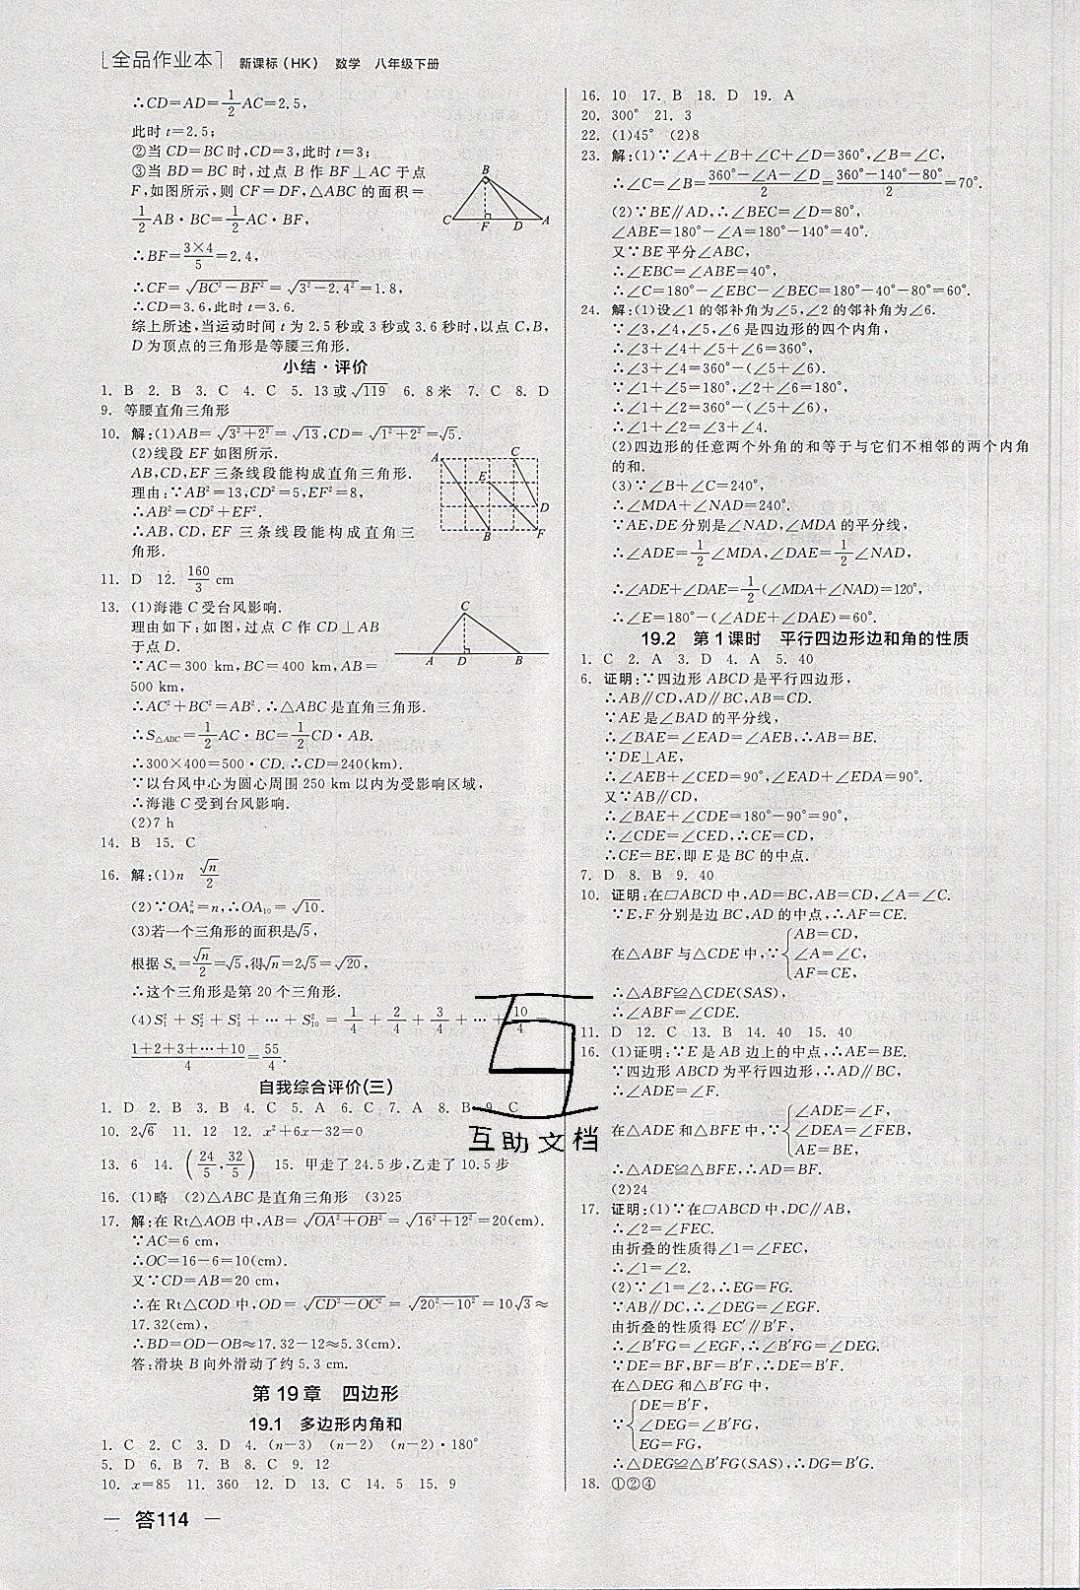 全品作业本 新课标(HK) 数学 八年级下册
∴CD=AD=1/2AC=2.5,
此时t=2.5;
②当CD=BC时,CD=3,此时t=3;
③当BD=BC时,过点B作BF⊥AC于点
F,如图所示,则CF=DF,△ABC的面积=
1/2AB·BC=1/2AC·BF,
∴BF=3×4/5=2.4,
∴CF=√(BC²-BF²)=√(3²-2.4²)=1.8,
∴CD=3.6,此时t=3.6.
综上所述,当运动时间t为2.5秒或3秒或3.6秒时,以点C,B,
D为顶点的三角形是等腰三角形.
B
C F D A
小结·评价
1. B 2. B 3. C 4. C 5. 13或√119 6. 8米 7. C 8. D
9. 等腰直角三角形
10. 解:(1)AB=√(3²+2²)=√13,CD=√(1²+2²)=√5.
(2)线段EF如图所示.
AB,CD,EF三条线段能构成直角三角形.
理由:∵AB²=13,CD²=5,EF²=8,
∴AB²=CD²+EF².
∴AB,CD,EF三条线段能构成直角三
角形.
A C
E
D
B F
11. D 12. 160/3 cm
13. (1)海港C受台风影响.
理由如下:如图,过点C作CD⊥AB
于点D.
∵AC=300 km,BC=400 km,AB=
500 km,
∴AC²+BC²=AB².∴△ABC是直角三角形.
∴S△ABC=1/2AC·BC=1/2CD·AB.
∴300×400=500·CD.∴CD=240(km).
∵以台风中心为圆心周围250 km以内为受影响区域,
∴海港C受到台风影响.
(2)7 h
C
A D B
14. B 15. C
16. 解:(1)n √n/2
(2)∵OAn²=n,∴OA₁₀=√10.
(3)若一个三角形的面积是√5,
根据Sn=√n/2=√5,得√n=2√5=√20,
∴这个三角形是第20个三角形.
(4)S₁²+S₂²+S₃²+…+S₁₀²=1/4+2/4+3/4+…+10/4=
1+2+3+…+10/4=55/4.
自我综合评价(三)
1. D 2. B 3. B 4. C 5. A 6. C 7. A 8. B 9. C
10. 2√6 11. 12 12. x²+6x-32=0
13. 6 14. (24/5,32/5) 15. 甲走了24.5步,乙走了10.5步
16. (1)略 (2)△ABC是直角三角形 (3)25
17. 解:在Rt△AOB中,AB=√(OA²+OB²)=√(16²+12²)=20(cm).
∵AC=6 cm,
∴OC=16-6=10(cm).
又∵CD=AB=20 cm,
∴在Rt△COD中,OD=√(CD²-OC²)=√(20²-10²)=10√3≈
17.32(cm),
∴BD=OD-OB≈17.32-12≈5.3(cm).
答:滑块B向外滑动了约5.3 cm.
第19章 四边形
19.1 多边形内角和
1. C 2. C 3. D 4. (n-3) (n-2) (n-2)·180°
5. D 6. B 7. B 8. C 9. 12
10. x=85 11. 360 12. D 13. C 14. 5 15. 9
— 答114 —
16. 10 17. B 18. D 19. A
20. 300° 21. 3
22. (1)45° (2)8
23. 解:(1)∵∠A+∠B+∠C+∠D=360°,∠B=∠C,
∴∠C=∠B=360°-∠A-∠D/2=360°-140°-80°/2=70°.
(2)∵BE∥AD,∴∠BEC=∠D=80°,
∠ABE=180°-∠A=180°-140°=40°.
又∵BE平分∠ABC,
∴∠EBC=∠ABE=40°,
∴∠C=180°-∠EBC-∠BEC=180°-40°-80°=60°.
24. 解:(1)设∠1的邻补角为∠5,∠2的邻补角为∠6.
∵∠3,∠4,∠5,∠6是四边形的四个内角,
∴∠3+∠4+∠5+∠6=360°,
∴∠3+∠4=360°-(∠5+∠6).
∵∠1+∠5=180°,∠2+∠6=180°,
∴∠1+∠2=360°-(∠5+∠6),
∴∠1+∠2=∠3+∠4.
(2)四边形的任意两个外角的和等于与它们不相邻的两个内角
的和.
(3)∵∠B+∠C=240°,
∴∠MDA+∠NAD=240°.
∵AE,DE分别是∠NAD,∠MDA的平分线,
∴∠ADE=1/2∠MDA,∠DAE=1/2∠NAD,
∴∠ADE+∠DAE=1/2(∠MDA+∠NAD)=120°,
∴∠E=180°-(∠ADE+∠DAE)=60°.
19.2 第1课时 平行四边形边和角的性质
1. C 2. A 3. D 4. A 5. 40
6. 证明:∵四边形ABCD是平行四边形,
∴AB∥CD,AD∥BC,AB=CD.
∵AE是∠BAD的平分线,
∴∠BAE=∠EAD=∠AEB,∴AB=BE.
∵DE⊥AE,
∴∠AEB+∠CED=90°,∠EAD+∠EDA=90°.
又∵AB∥CD,
∴∠BAE+∠CDE=180°-90°=90°,
∴∠CDE=∠CED,∴CE=CD,
∴CE=BE,即E是BC的中点.
7. D 8. B 9. 40
10. 证明:在▱ABCD中,AD=BC,AB=CD,∠A=∠C.
∵E,F分别是边BC,AD的中点,∴AF=CE.
在△ABF与△CDE中,∵{AB=CD,
∠A=∠C,
AF=CE,
∴△ABF≌△CDE(SAS),
∴∠ABF=∠CDE.
11. D 12. C 13. B 14. 40 15. 40
16. (1)证明:∵E是AB边上的中点,∴AE=BE.
∵四边形ABCD为平行四边形,∴AD∥BC,
∴∠ADE=∠F.
在△ADE和△BFE中,∵{∠ADE=∠F,
∠DEA=∠FEB,
AE=BE,
∴△ADE≌△BFE,∴AD=BF.
(2)24
17. 证明:(1)∵在▱ABCD中,DC∥AB,
∴∠2=∠FEC.
由折叠的性质得∠1=∠FEC,
∴∠1=∠2.
(2)∵∠1=∠2,∴EG=FG.
∵AB∥DC,∴∠DEG=∠EGF.
由折叠的性质得EC′∥B′F,
∴∠B′FG=∠EGF,∴∠B′FG=∠DEG.
∵DE=BF,BF=B′F,∴DE=B′F.
在△DEG和△B′FG中,
∵{DE=B′F,
∠DEG=∠B′FG,
EG=FG,
∴△DEG≌△B′FG(SAS),∴DG=B′G.
18. ①②④
互助文档